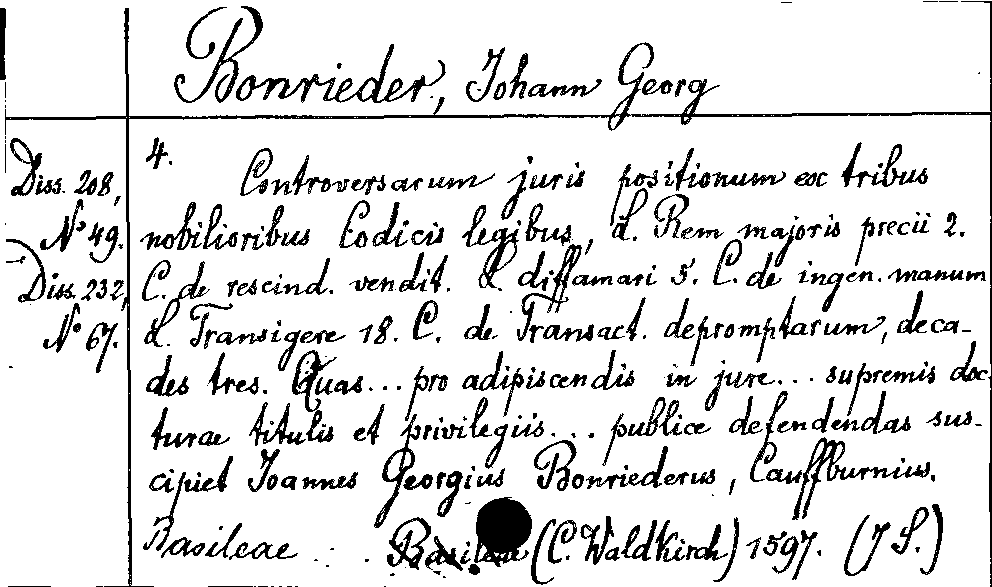 Bonrieder, Johann Georg
Diss. 208,
No 49.
Diss. 232,
No 67.
4.
Controversarum juris positionum ex tribus
nobilioribus Codicis legibus, L. Rem majoris precii 2.
C. de rescind. vendit. L. diffamari 5. C. de ingen. manum
L. Transigere 18. C. de Transact. depromptarum, deca-
des tres. Quas... pro adipiscendis in jure... supremis doc
turae titulis et privilegiis... publice defendendas sus-
cipiet Joannes Georgius Bonriederus, Cauffburnius.
Basileae . . . Basileae (C. Waldkirch) 1597. (J S.)